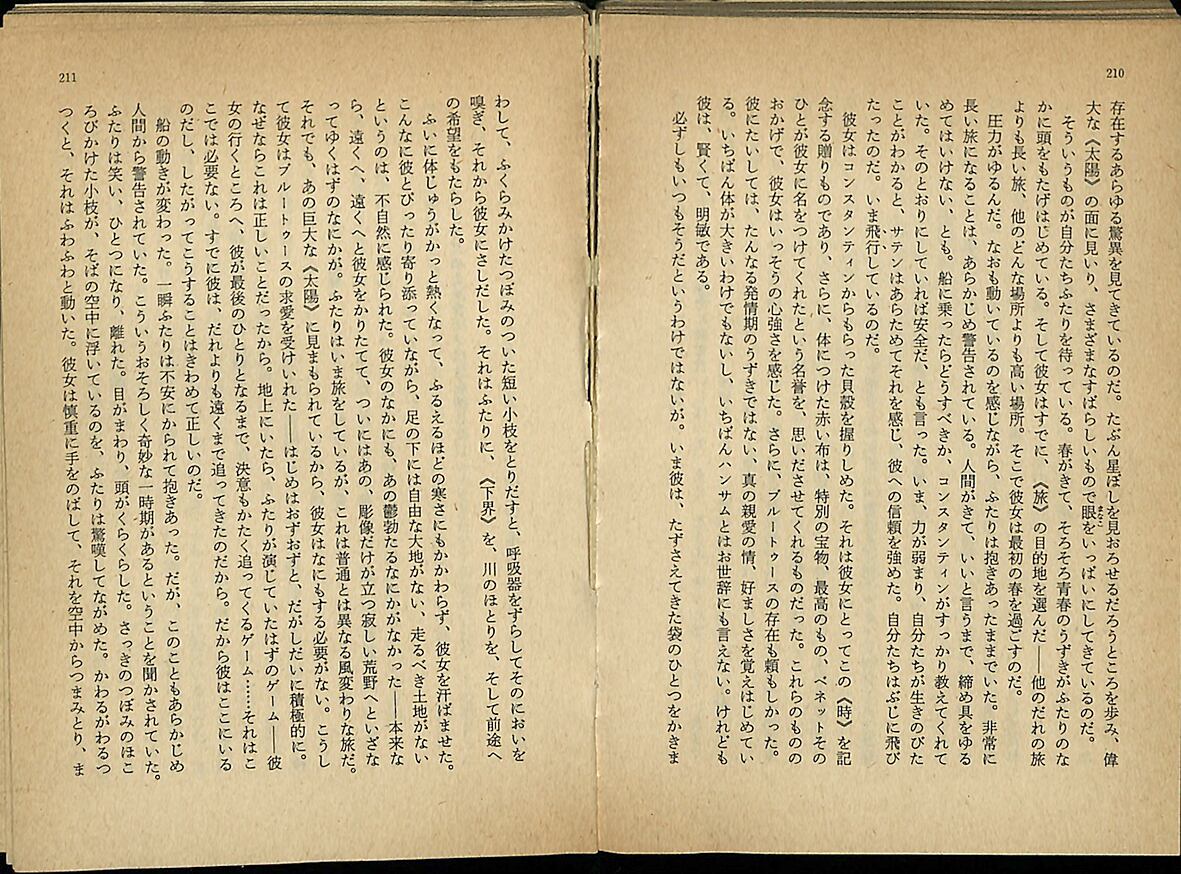 210
存在するあらゆる驚異を見てきているのだ。たぶん星ぼしを見おろせるだろうところを歩み、偉
大な《太陽》の面に見いり、さまざまなすばらしいもので眼をいっぱいにしてきているのだ。
まなこ
そういうものが自分たちふたりを待っている。春がきて、そろそろ青春のうずきがふたりのな
かに頭をもたげはじめている。そして彼女はすでに、《旅》の目的地を選んだ――他のだれの旅
よりも長い旅、他のどんな場所よりも高い場所。そこで彼女は最初の春を過ごすのだ。
圧力がゆるんだ。なおも動いているのを感じながら、ふたりは抱きあったままでいた。非常に
長い旅になることは、あらかじめ警告されている。人間がきて、いいと言うまで、締め具をゆる
めてはいけない、とも。船に乗ったらどうすべきか、コンスタンティンがすっかり教えてくれて
いた。そのとおりにしていれば安全だ、とも言った。いま、力が弱まり、自分たちが生きのびた
ことがわかると、サテンはあらためてそれを感じ、彼への信頼を強めた。自分たちはぶじに飛び
たったのだ。いま飛行しているのだ。
彼女はコンスタンティンからもらった貝殻を握りしめた。それは彼女にとってこの《時》を記
念する贈りものであり、さらに、体につけた赤い布は、特別の宝物、最高のもの、ベネットその
ひとが彼女に名をつけてくれたという名誉を、思いださせてくれるものだった。これらのものの
おかげで、彼女はいっそうの心強さを感じた。さらに、ブルートゥースの存在も頼もしかった。
彼にたいしては、たんなる発情期のうずきではない、真の親愛の情、好ましさを覚えはじめてい
る。いちばん体が大きいわけでもないし、いちばんハンサムとはお世辞にも言えない。けれども
彼は、賢くて、明敏である。
必ずしもいつもそうだというわけではないが。いま彼は、たずさえてきた袋のひとつをかきま
211
わして、ふくらみかけたつぼみのついた短い小枝をとりだすと、呼吸器をずらしてそのにおいを
嗅ぎ、それから彼女にさしだした。それはふたりに、《下界》を、川のほとりを、そして前途へ
の希望をもたらした。
ふいに体じゅうがかっと熱くなって、ふるえるほどの寒さにもかかわらず、彼女を汗ばませた。
こんなに彼とぴったり寄り添っていながら、足の下には自由な大地がない、走るべき土地がない
というのは、不自然に感じられた。彼女のなかにも、あの鬱勃たるなにかがなかった――本来な
ら、遠くへ、遠くへと彼女をかりたてて、ついにはあの、彫像だけが立つ寂しい荒野へといざな
ってゆくはずのなにかが。ふたりはいま旅をしているが、これは普通とは異なる風変わりな旅だ。
それでも、あの巨大な《太陽》に見まもられているから、彼女はなにもする必要がない。こうし
て彼女はブルートゥースの求愛を受けいれた――はじめはおずおずと、だがしだいに積極的に。
なぜならこれは正しいことだったから。地上にいたら、ふたりが演じていたはずのゲーム――彼
女の行くところへ、彼が最後のひとりとなるまで、決意もかたく追ってくるゲーム……それはこ
こでは必要ない。すでに彼は、だれよりも遠くまで追ってきたのだから。だから彼はここにいる
のだし、したがってこうすることはきわめて正しいのだ。
船の動きが変わった。一瞬ふたりは不安にかられて抱きあった。だが、このこともあらかじめ
人間から警告されていた。こういうおそろしく奇妙な一時期があるということを聞かされていた。
ふたりは笑い、ひとつになり、離れた。目がまわり、頭がくらくらした。さっきのつぼみのほこ
ろびかけた小枝が、そばの空中に浮いているのを、ふたりは驚嘆してながめた。かわるがわるつ
つくと、それはふわふわと動いた。彼女は慎重に手をのばして、それを空中からつまみとり、ま